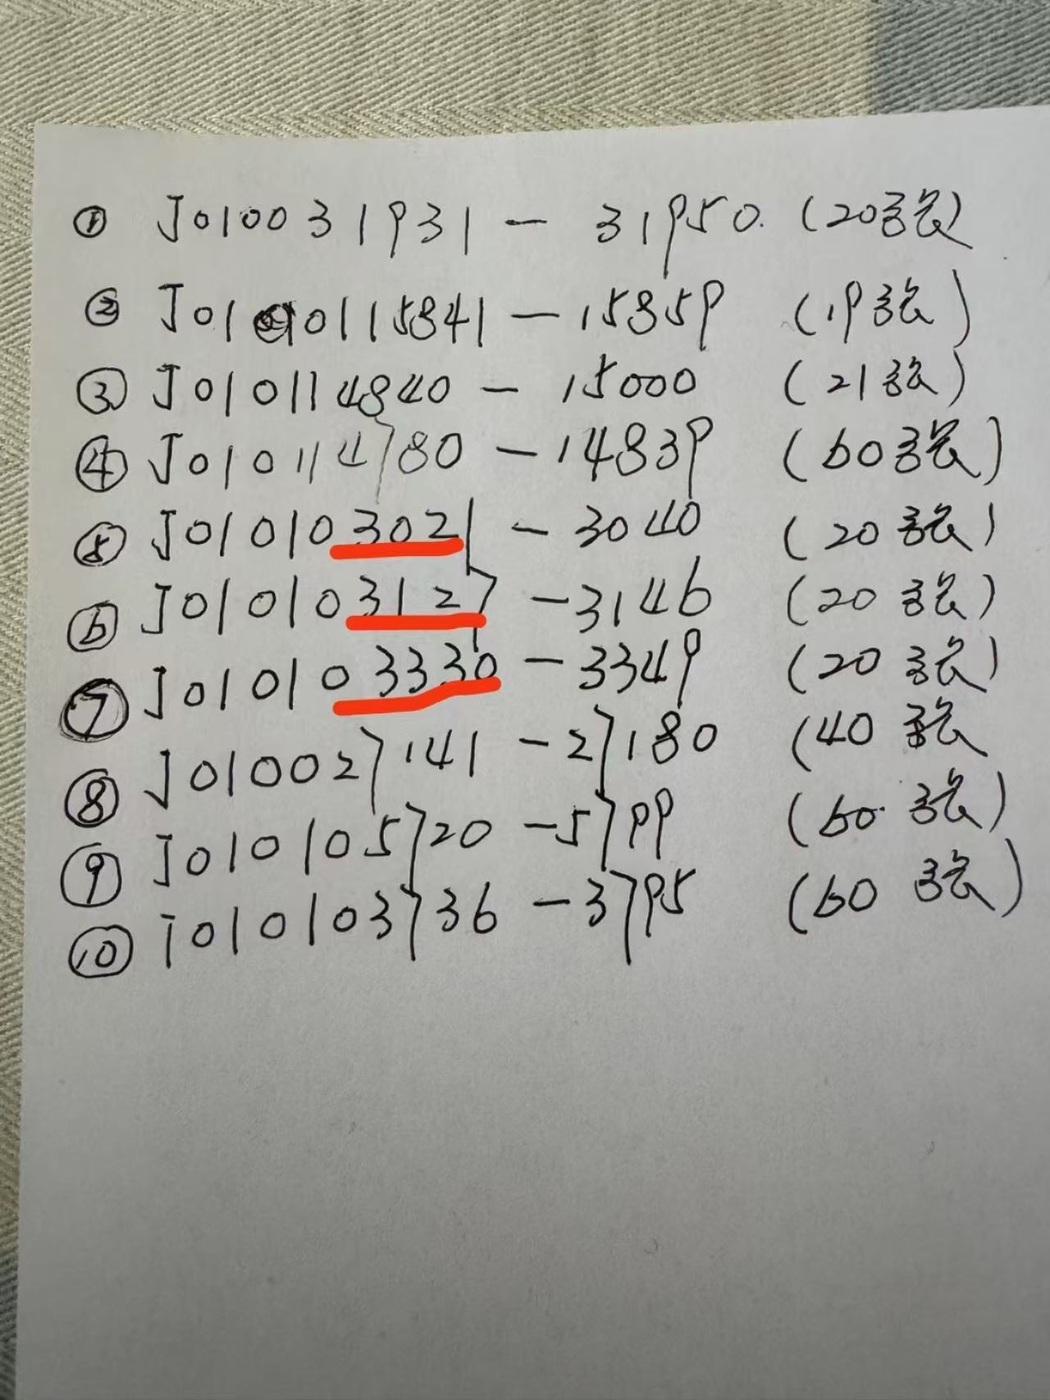 ① J0100 31931 - 31950. (20张)
② J010115841 - 15859 (19张)
③ J010114840 - 15000 (21张)
④ J010114780 - 14839 (60张)
⑤ J010103021 - 3040 (20张)
⑥ J010103127 - 3146 (20张)
⑦ J010103330 - 3349 (20张)
⑧ J010027141 - 27180 (40张
⑨ J010105720 - 5799 (60张)
⑩ J010103736 - 3795 (60张)